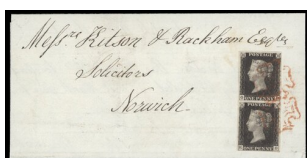 Messrs Kitson & Rackham Esqrs
Solicitors
Norwich.
POSTAGE
ONE PENNY
POSTAGE
ONE PENNY